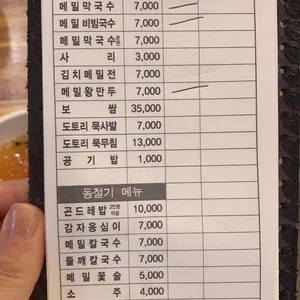 메밀막국수 7,000
메밀비빔국수 7,000
메밀막국수 7,000
사리 3,000
김치메밀전 7,000
메밀왕만두 7,000
보쌈 35,000
도토리 묵사발 7,000
도토리 묵무침 13,000
공기밥 1,000
동절기 메뉴
곤드레밥 2인분 이상 10,000
감자옹심이 7,000
메밀칼국수 7,000
들깨칼국수 7,000
메밀꽃술 5,000
소주 4,000